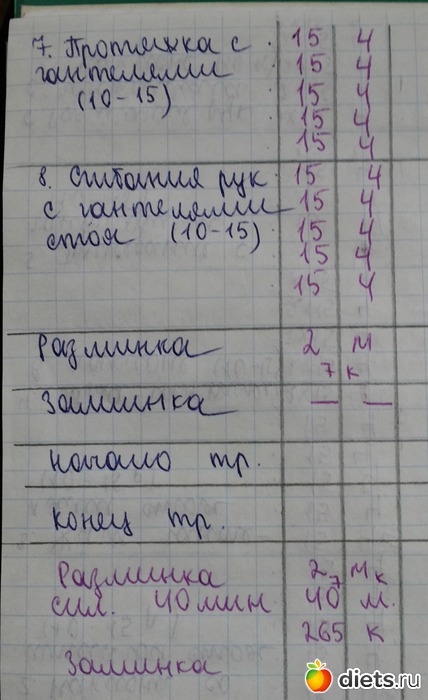 7. Протяжка с 15 4
гантелями 15 4
(10-15) 15 4
15 4
15 4
8. Сгибания рук 15 4
с гантелями 15 4
стоя (10-15) 15 4
15 4
15 4
Разминка 2 м
7 к
Заминка — —
Начало тр.
Конец тр.
Разминка 2 м 7 к
сил. 40 мин 40 м.
265 к
Заминка
diets.ru